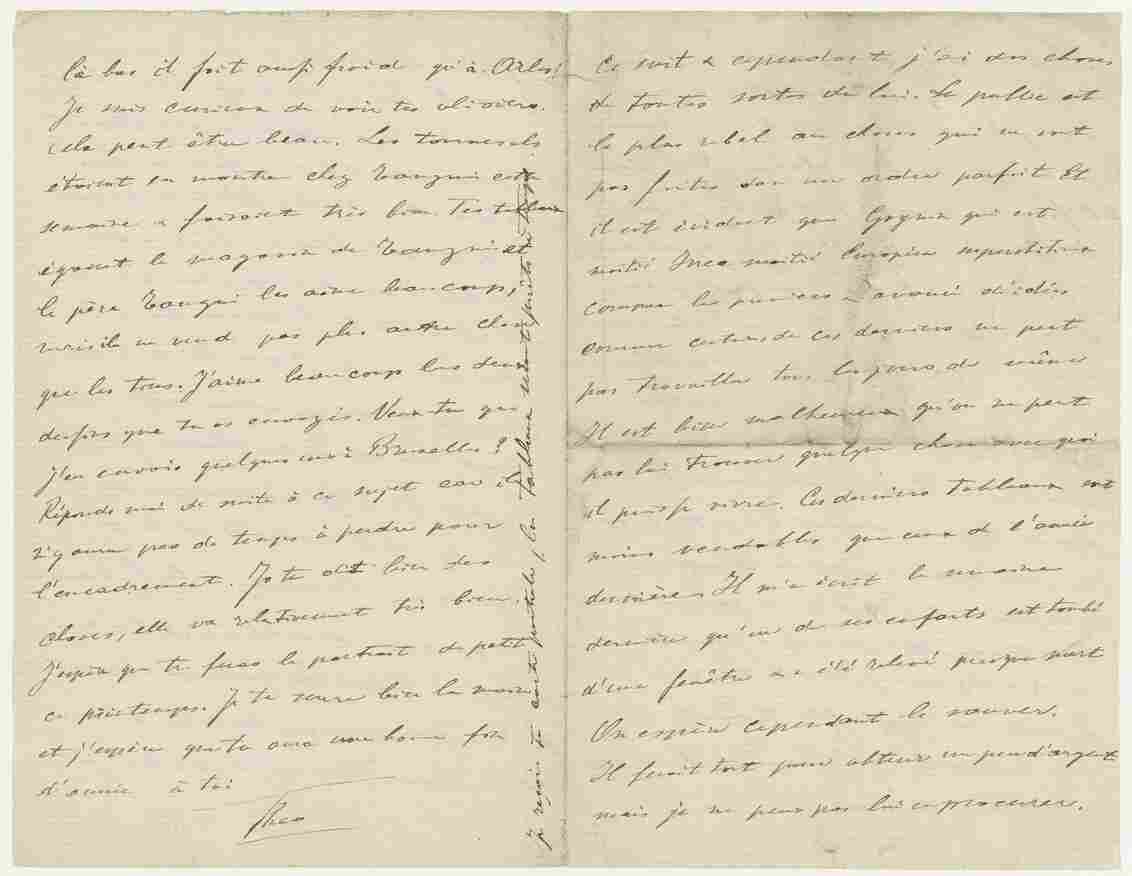 là bas il fait aussi froid qu'à Arles!
Je suis curieux de voir tes oliviers.
Cela peut être beau. Les tournesols
étaient en montre chez Tangui cette
semaine & faisaient très bien. Tes tableaux
égayent le magasin de Tangui et
le père Tangui les aime beaucoup,
mais il ne vend pas plus autre chose
que les tiens. J'aime beaucoup les deux
que tu as envoyés. Veux tu que
j'en envoie quelques uns à Bruxelles?
Réponds moi de suite à ce sujet car il
n'y aura pas de temps à perdre pour
l'encadrement. Jo te dit bien des
choses, elle va relativement très bien.
J'espère que tu feras le portrait du petit
ce printemps. Je te serre bien la main
et j'espère que tu auras une bonne fin
d'année à toi
Theo
je reçois ta carte postale, les tableaux seront
Ce soit & cependant j'ai des choses
de toutes sortes de lui. Le public est
le plus rebel au choses qui ne sont
pas faites dans un ordre parfait Et
il est évident que Gogun qui est
moitié Inca moitié Européen superstitieux
comme les premiers & avancé d'idées
comme certains de ces derniers ne peut
pas travailler tous les jours de même
Il est bien malheureux qu'on ne peut
pas lui trouver quelque chose avec quoi
il puisse vivre. Ces derniers tableaux sont
moins vendables que ceux de l'année
dernière. Il m'a écrit la semaine
dernière qu'un de ses enfants est tombé
d'une fenêtre & a été relevé presque mort
On espère cependant le sauver.
Il ferait tout pour obtenir un peu d'argent
mais je ne peux pas lui en procurer.